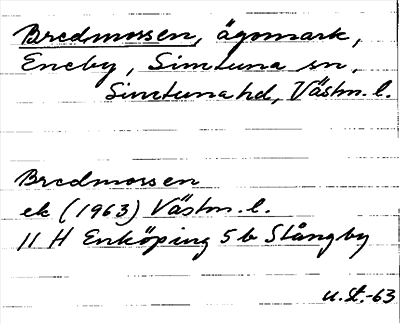 Bredmossen, ägomark,
Eneby, Simtuna sn,
Simtuna hd, Västm. l.
Bredmossen
ek (1963) Västm. l.
11 H Enköping 5 b Stångby
U. St. -63